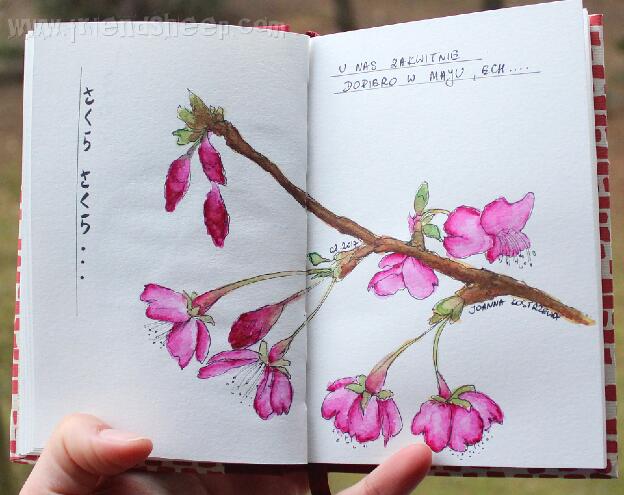 www.friendsheep.com
さくら さくら...
U NAS ZAKWITNIE
DOPIERO W MAYU, ECH....
2017
JOANNA KOSTRZEWA